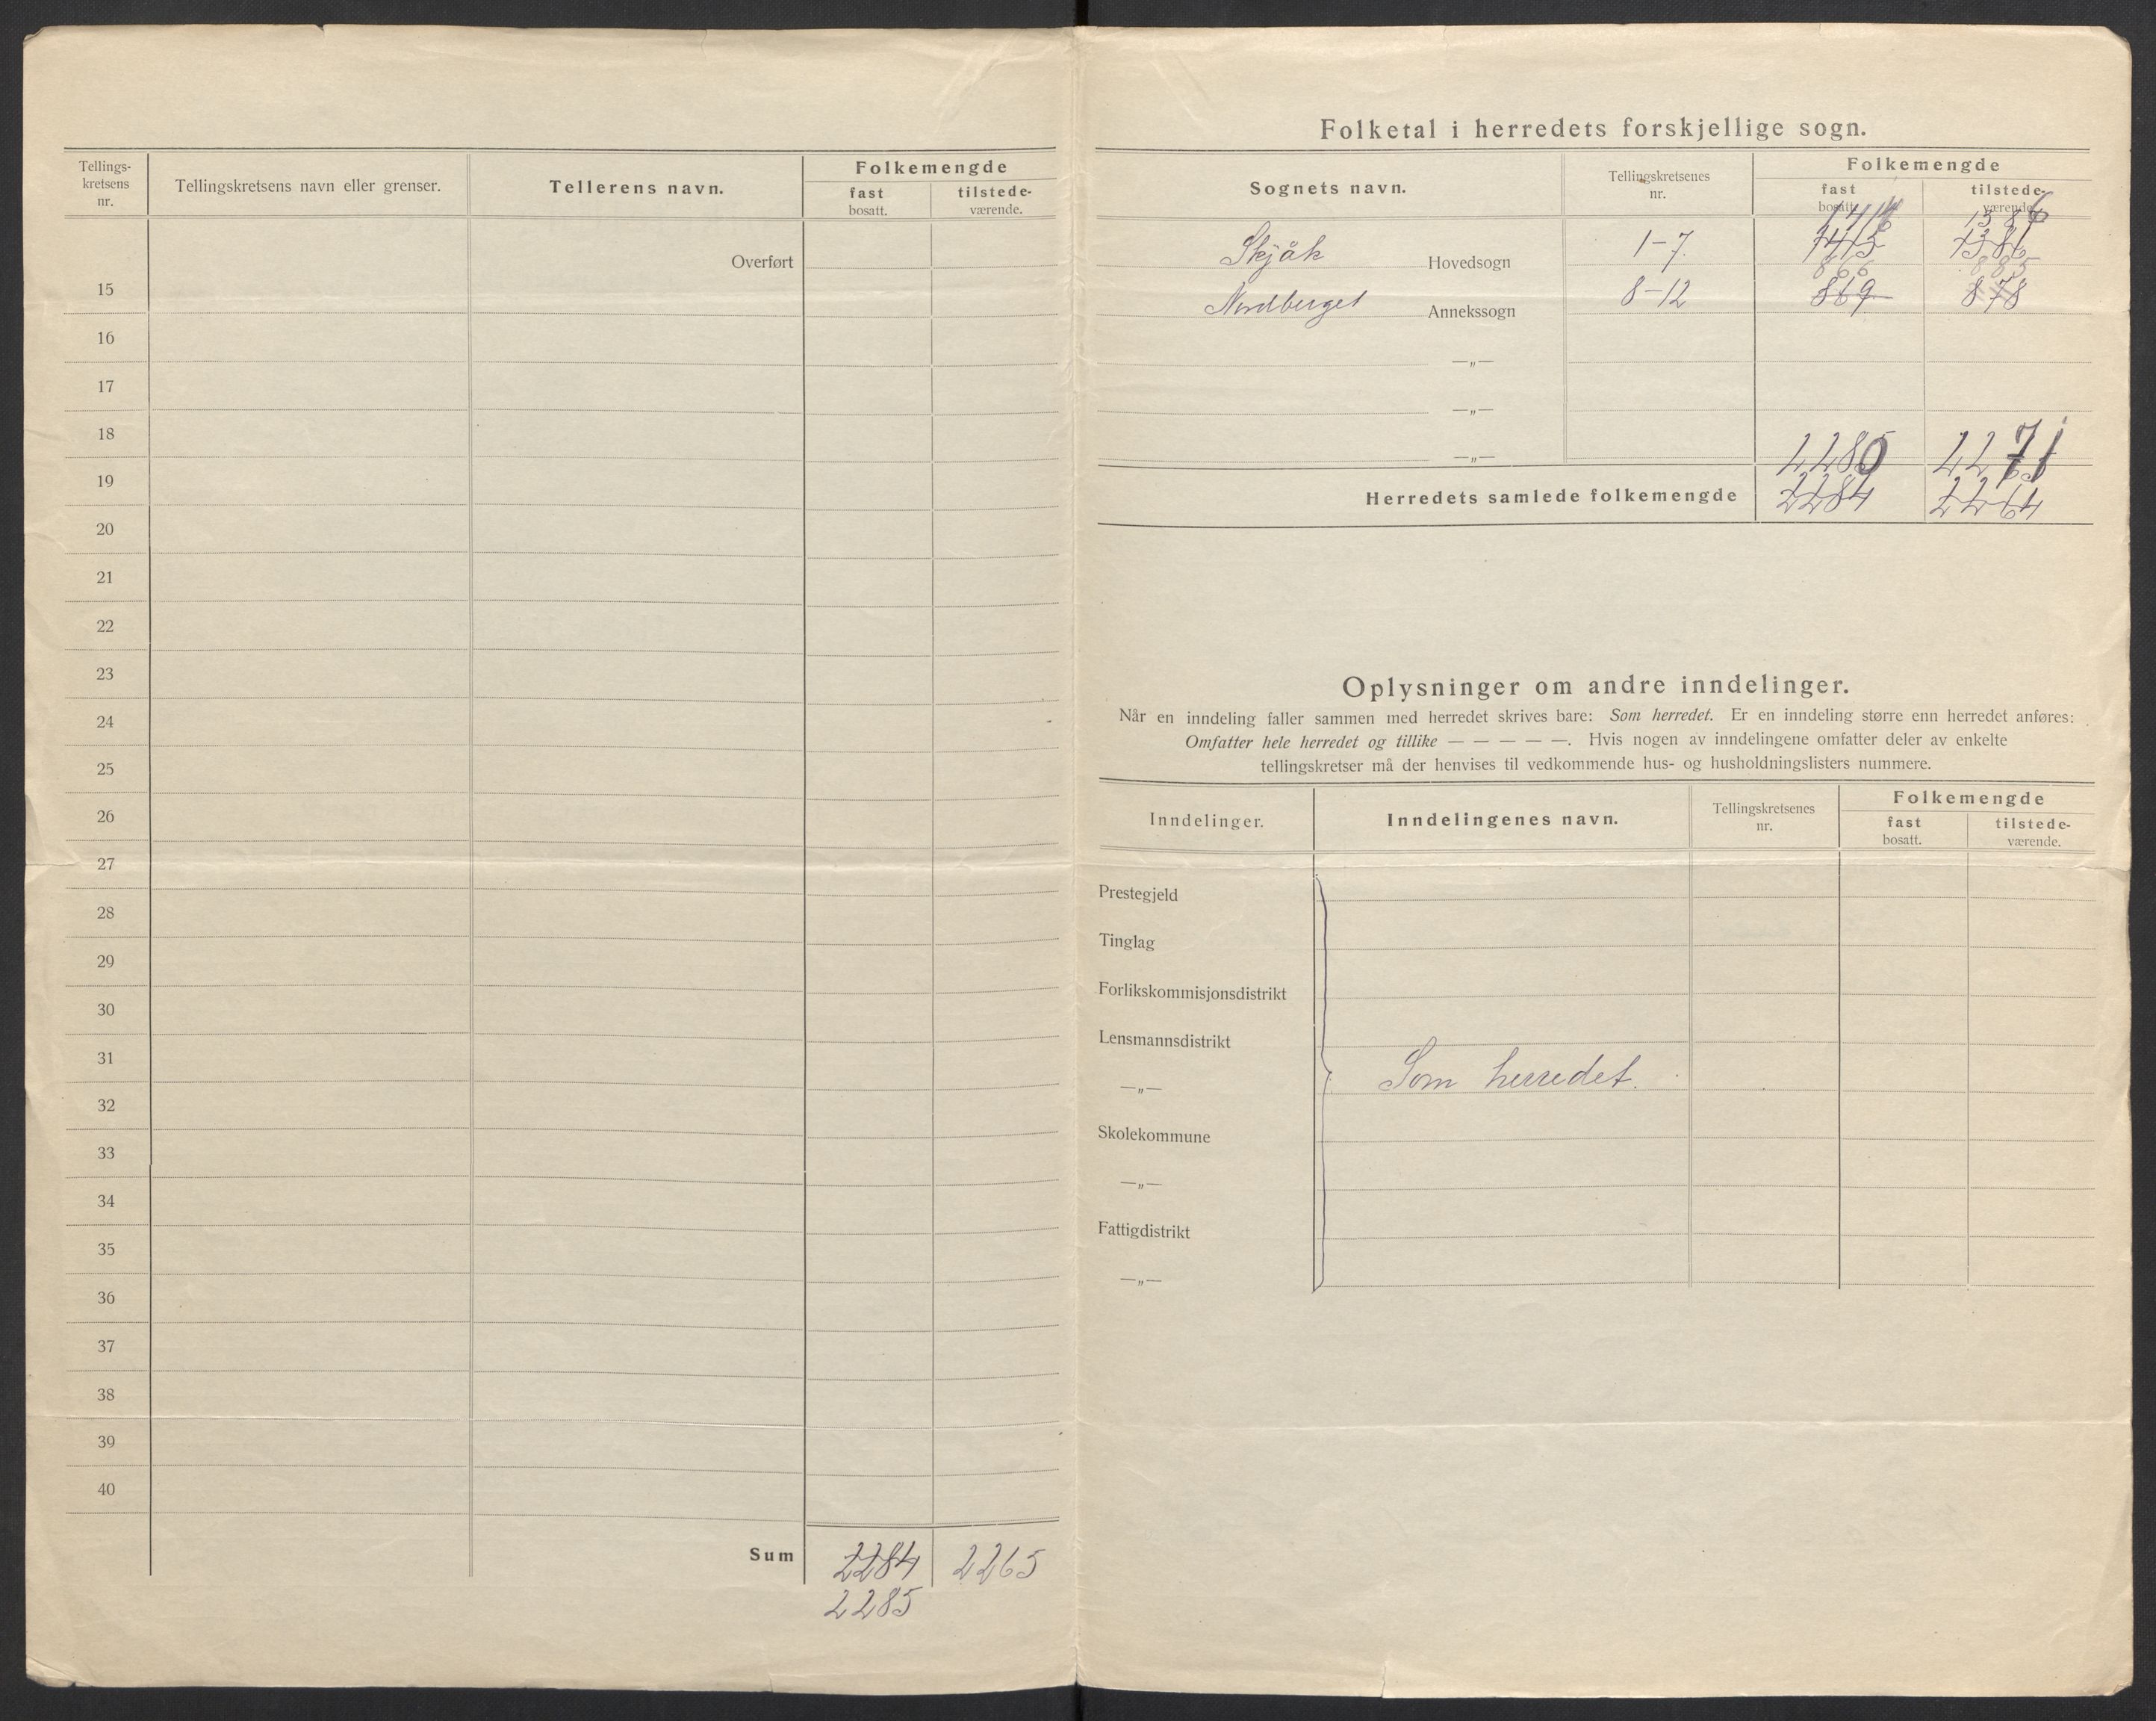 Tellings-
kretsens
nr.
Tellingskretsens navn eller grenser.
Tellerens navn.
Folkemengde
fast
bosatt.
tilstede-
værende.
Overført
15
16
17
18
19
20
21
22
23
24
25
26
27
28
29
30
31
32
33
34
35
36
37
38
39
40
Sum 2284 2265
2285
Folketal i herredets forskjellige sogn.
Sognets navn.
Tellingskretsenes
nr.
Folkemengde
fast
bosatt.
tilstede-
værende.
1386
Skjåk Hovedsogn 1-7 1415 1381
866 885
Nordberget Annekssogn 8-12 869 878
—„—
—„—
—„—
2280 2271
Herredets samlede folkemengde 2284 2264
Oplysninger om andre inndelinger.
Når en inndeling faller sammen med herredet skrives bare: Som herredet. Er en inndeling større enn herredet anføres:
Omfatter hele herredet og tillike — — — — —. Hvis nogen av inndelingene omfatter deler av enkelte
tellingskretser må der henvises til vedkommende hus- og husholdningslisters nummere.
Inndelinger.
Inndelingenes navn.
Tellingskretsenes
nr.
Folkemengde
fast
bosatt.
tilstede-
værende.
Prestegjeld
Tinglag
Forlikskommisjonsdistrikt
Lensmannsdistrikt
Som herredet.
—„—
Skolekommune
—„—
Fattigdistrikt
—„—